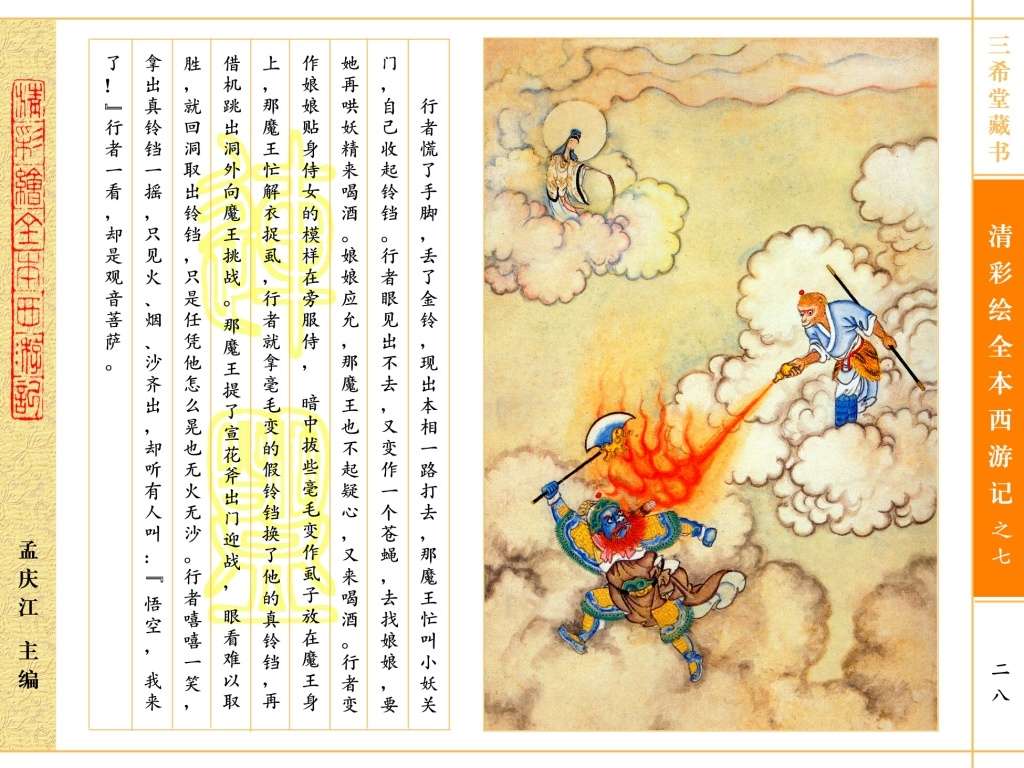 三希堂藏书
清彩绘全本西游记之七
二八
行者慌了手脚，丢了金铃，现出本相一路打去，那魔王忙叫小妖关
门，自己收起铃铛。行者眼见出不去，又变作一个苍蝇，去找娘娘，要
她再哄妖精来喝酒。娘娘应允，那魔王也不起疑心，又来喝酒。行者变
作娘娘贴身侍女的模样在旁服侍，暗中拔些毫毛变作虱子放在魔王身
上，那魔王忙解衣捉虱，行者就拿毫毛变的假铃铛换了他的真铃铛，再
借机跳出洞外向魔王挑战。那魔王提了宣花斧出门迎战，眼看难以取
胜，就回洞取出铃铛，只是任凭他怎么晃也无火无沙。行者嘻嘻一笑，
拿出真铃铛一摇，只见火、烟、沙齐出，却听有人叫：『悟空，我来
了！』行者一看，却是观音菩萨。
精彩绘全本西游记
孟庆江 主编